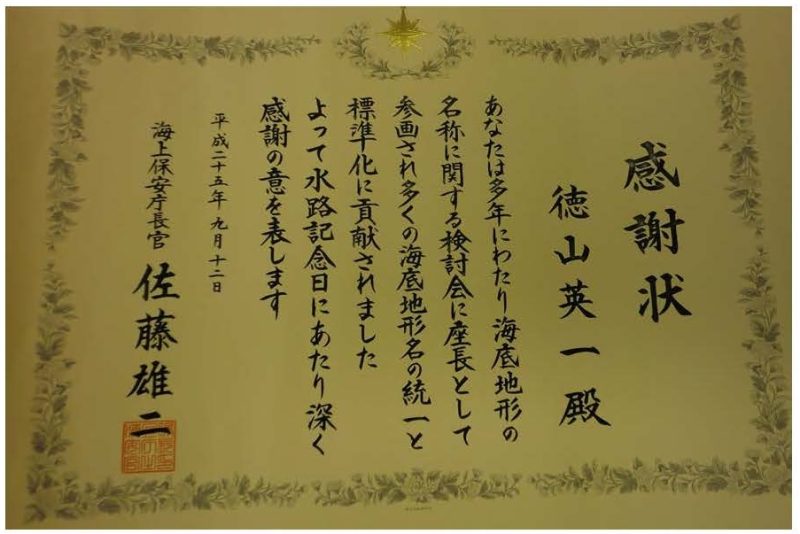 感謝状
徳山英一殿
あなたは多年にわたり海底地形の
名称に関する検討会に座長として
参画され多くの海底地形名の統一と
標準化に貢献されました
よって水路記念日にあたり深く
感謝の意を表します
平成二十五年九月十二日
海上保安庁長官 佐藤雄二